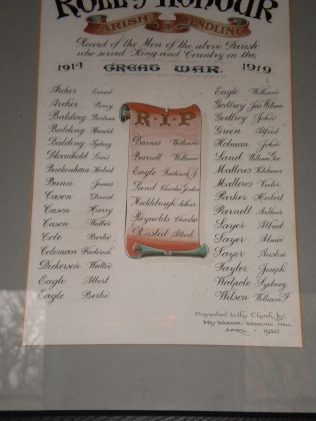 ROLL OF HONOUR
PARISH OF WENDLING
Record of the Men of the above Parish
who served King and Country in the
1914 GREAT WAR. 1919
Archer Ernest
Archer Percy
Balding Bertram
Balding Harold
Balding Sydney
Blomfield Louis
Buckenham Herbert
Bunn James
Cason David
Cason Harry
Cason Walter
Cole Bertie
Coleman Frederick
Dickerson Walter
Eagle Albert
Eagle Bertie
R.I.P
Barnes William
Burrell William
Eagle Frederick J
Land Charles Gordon
Meckleburgh Arthur
Reynolds Charles
Rusted Albert
Eagle William
Godfrey Jas William
Godfrey John
Green Alfred
Holman John
Land William Geo
Mallows Kitchener
Mallows Victor
Parker Herbert
Parnell Arthur
Sayer Alfred
Sayer Alma
Sayer Austin
Taylor Joseph
Walpole Sydney
Wilson William F
Presented to the Church by
Mrs Warner - Wendling Hall
April . 1920